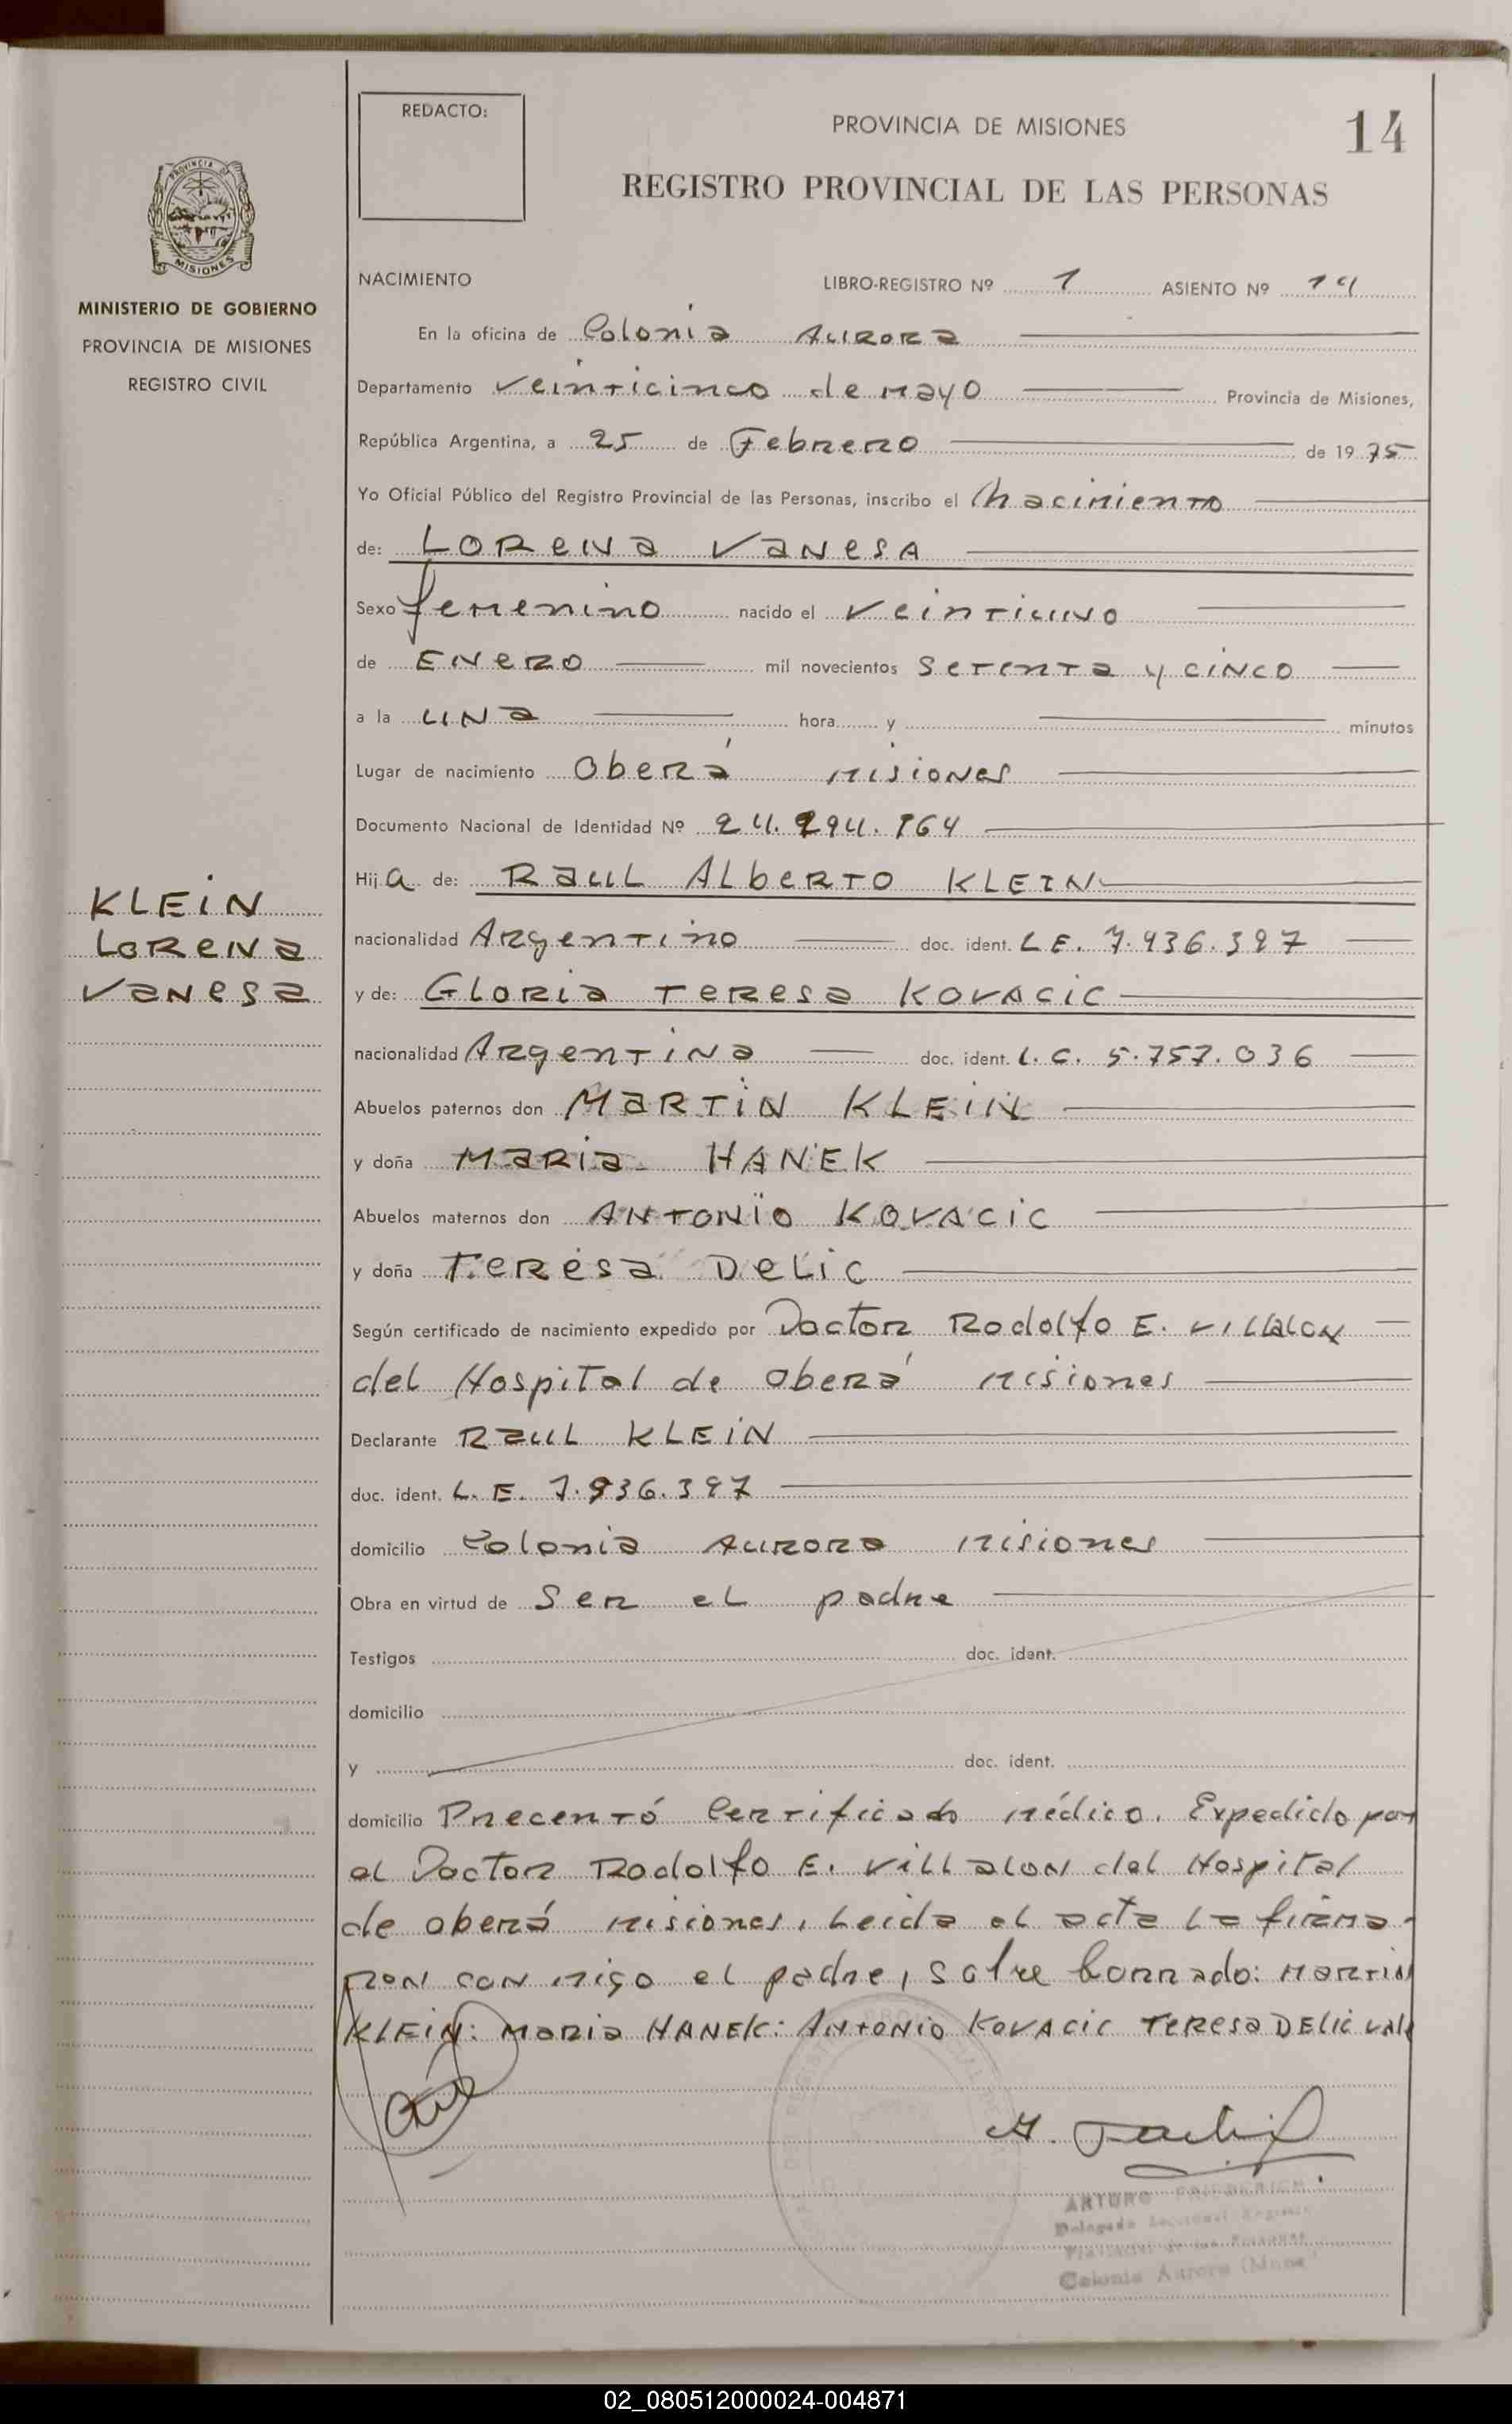 REDACTO:
PROVINCIA DE MISIONES
14
REGISTRO PROVINCIAL DE LAS PERSONAS
PROVINCIA
MISIONES
MINISTERIO DE GOBIERNO
PROVINCIA DE MISIONES
REGISTRO CIVIL
NACIMIENTO LIBRO-REGISTRO Nº 1 ASIENTO Nº 14
En la oficina de Colonia Aurora
Departamento Veinticinco de Mayo Provincia de Misiones,
República Argentina, a 25 de Febrero de 1975
Yo Oficial Público del Registro Provincial de las Personas, inscribo el nacimiento
de: LORENA VANESA
Sexo femenino nacido el veintiuno
de ENERO mil novecientos setenta y cinco
a la una hora y minutos
Lugar de nacimiento Oberá Misiones
Documento Nacional de Identidad Nº 24.294.164
Hija de: RAUL ALBERTO KLEIN
KLEIN
LORENA
VANESA
nacionalidad Argentino doc. ident. L E. 7.936.397
y de: GLORIA TERESA KOVACIC
nacionalidad Argentina doc. ident. L. C. 5.757.036
Abuelos paternos don MARTIN KLEIN
y doña MARIA HANEK
Abuelos maternos don ANTONIO KOVACIC
y doña TERESA DELIC
Según certificado de nacimiento expedido por Doctor Rodolfo E. Villalon
del Hospital de Oberá Misiones
Declarante RAUL KLEIN
doc. ident. L. E. 7.936.397
domicilio Colonia Aurora Misiones
Obra en virtud de ser el padre
Testigos doc. ident.
domicilio
y doc. ident.
domicilio Precentó Certificado Médico. Expedido por
el Doctor Rodolfo E. Villalon del Hospital
de Oberá Misiones, Leida el acta la firma-
ron con migo el padre, sobre borrado: Martin
KLEIN: Maria HANEK: Antonio KOVACIC TERESA DELIC vale
ARTURO
Delegado
Colonia Aurora
02_080512000024-004871